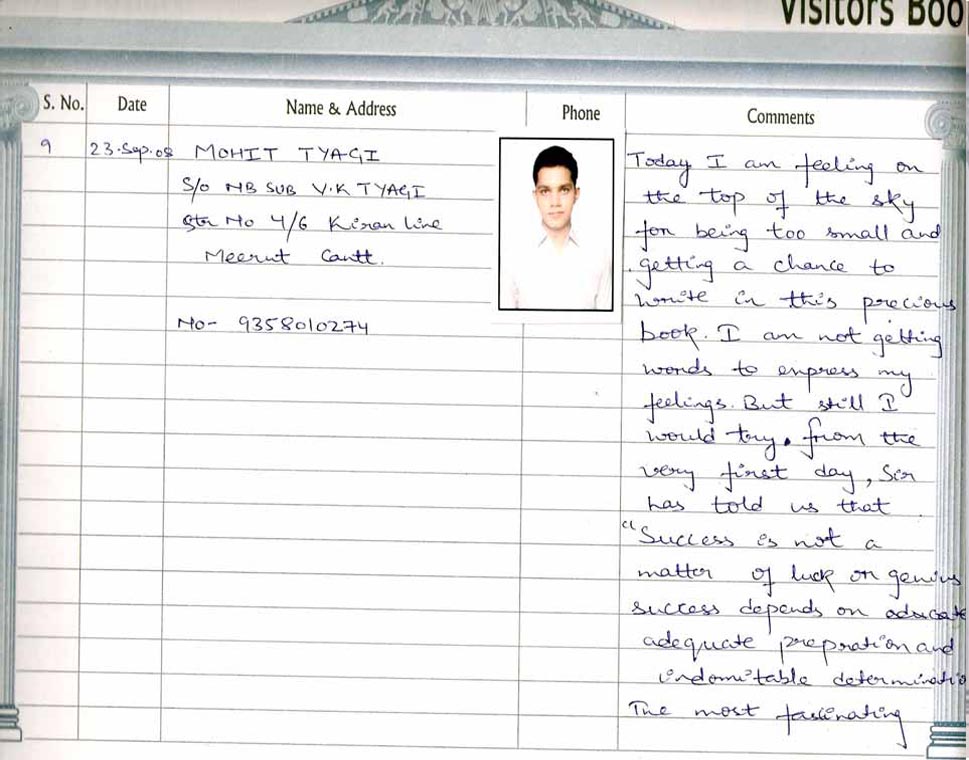 Visitors Boo
S. No. Date Name & Address Phone Comments
9 23.Sep.08 MOHIT TYAGI
S/O NB SUB V.K TYAGI
Qtr No 4/6 Kiran Line
Meerut Cantt.
No- 9358010274
Today I am feeling on
the top of the sky
for being too small and
getting a chance to
write in this precious
book. I am not getting
words to express my
feelings. But still I
would try. from the
very first day, Sir
has told us that
"Success is not a
matter of luck or genius
success depends on
adequate prepration and
indomitable determinatio
The most fascinating